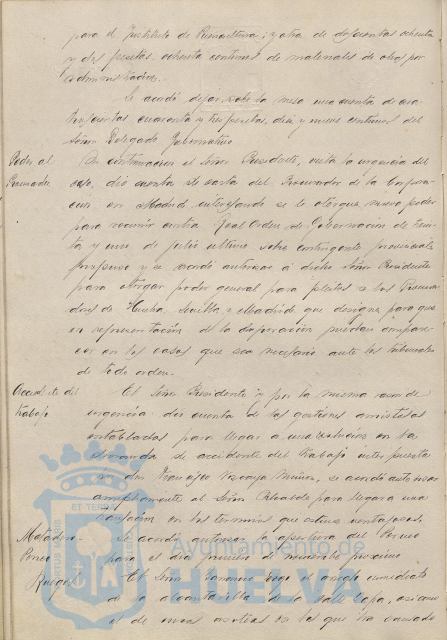 para el Instituto de Puericultura; y otra de doscientas ochenta
y dos pesetas, ochenta centimos de materiales de obras por
administración.
Se acordó dejar sobre la mesa una cuenta de
cuarenta y tres pesetas, diez y nueve centimos del
Señor Delegado Gubernativo
Poder al
Procurador
A continuacion el Señor Presidente, vista la urgencia del
caso, dió cuenta de carta del Procurador de la Corpora-
cion en Madrid interesando se le otorgue nuevo poder
para recurrir contra Real Orden de Gobernación de trein-
ta y uno de julio ultimo sobre contingente provincial
y se acordó autorizar á dicho Señor Presidente
para otorgar poder general para pleitos a los Procura-
dores de Huelva, Sevilla y Madrid que designe para que
en representación de la Corporacion puedan compare-
cer en los casos que sea necesario ante los tribunales
de todo orden.
Accidente del
trabajo
El Señor Presidente y por la misma razon de
urgencia dió cuenta de las gestiones amistosas
entabladas para llegar a una solución en la
demanda de accidente del trabajo interpuesta
por Don Francisco Vizcaya Muñoz, se acordó autorizar
ampliamente al Señor Alcalde para llegar a una
transacción en los terminos que estime ventajosos.
Matadero
Se acordó autorizar la apertura del
para el dia primero de noviembre proximo
Ruegos
El Señor rogó el arreglo inmediato
de la alcantarilla de la calle
el de unas acometidas en los que ha causado
Ayuntamiento de
HUELVA